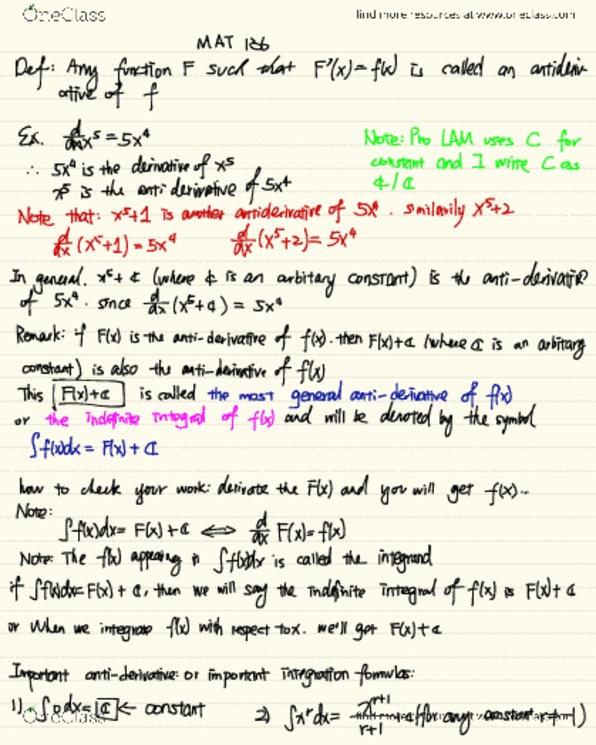 OneClass
find more resources at www.oneclass.com
MAT 136
Def: Any function F such that F'(x)=f(x) is called an antideriv-
ative of f
Ex. d/dx x⁵ = 5x⁴
Note: Pro LAM uses C for
∴ 5x⁴ is the derivative of x⁵
constant and I write C as
x⁵ is the anti derivative of 5x⁴
¢/ℂ
Note that: x⁵+1 is another antiderivative of 5x⁴. similarily x⁵+2
d/dx (x⁵+1) = 5x⁴ d/dx (x⁵+2) = 5x⁴
In general, x⁵+ ¢ (where ¢ is an arbitary constant) is the anti-derivative
of 5x⁴. since d/dx (x⁵+¢) = 5x⁴
Remark: if F(x) is the anti-derivative of f(x). then F(x)+ℂ (where ℂ is an arbitary
constant) is also the anti-derivative of f(x)
This F(x)+ℂ is called the most general anti-derivative of f(x)
or the indefinite integral of f(x) and will be denoted by the symbol
∫f(x)dx = F(x) + ℂ
how to check your work: derivate the F(x) and you will get f(x)..
Note:
∫f(x)dx = F(x) + ℂ ⟺ d/dx F(x) = f(x)
Note: The f(x) appearing in ∫f(x)dx is called the integrand
if ∫f(x)dx = F(x) + ℂ, then we will say the indefinite integral of f(x) is F(x)+ ℂ
or When we integrate f(x) with respect to x. we'll get F(x)+ℂ
Important anti-derivative or important integration formulas:
1) ∫0dx = ℂ ← constant 2) ∫xʳdx = xʳ⁺¹/r+1 + ℂ (for any constant r ≠ -1)
OneClass
find more resources at www.oneclass.com